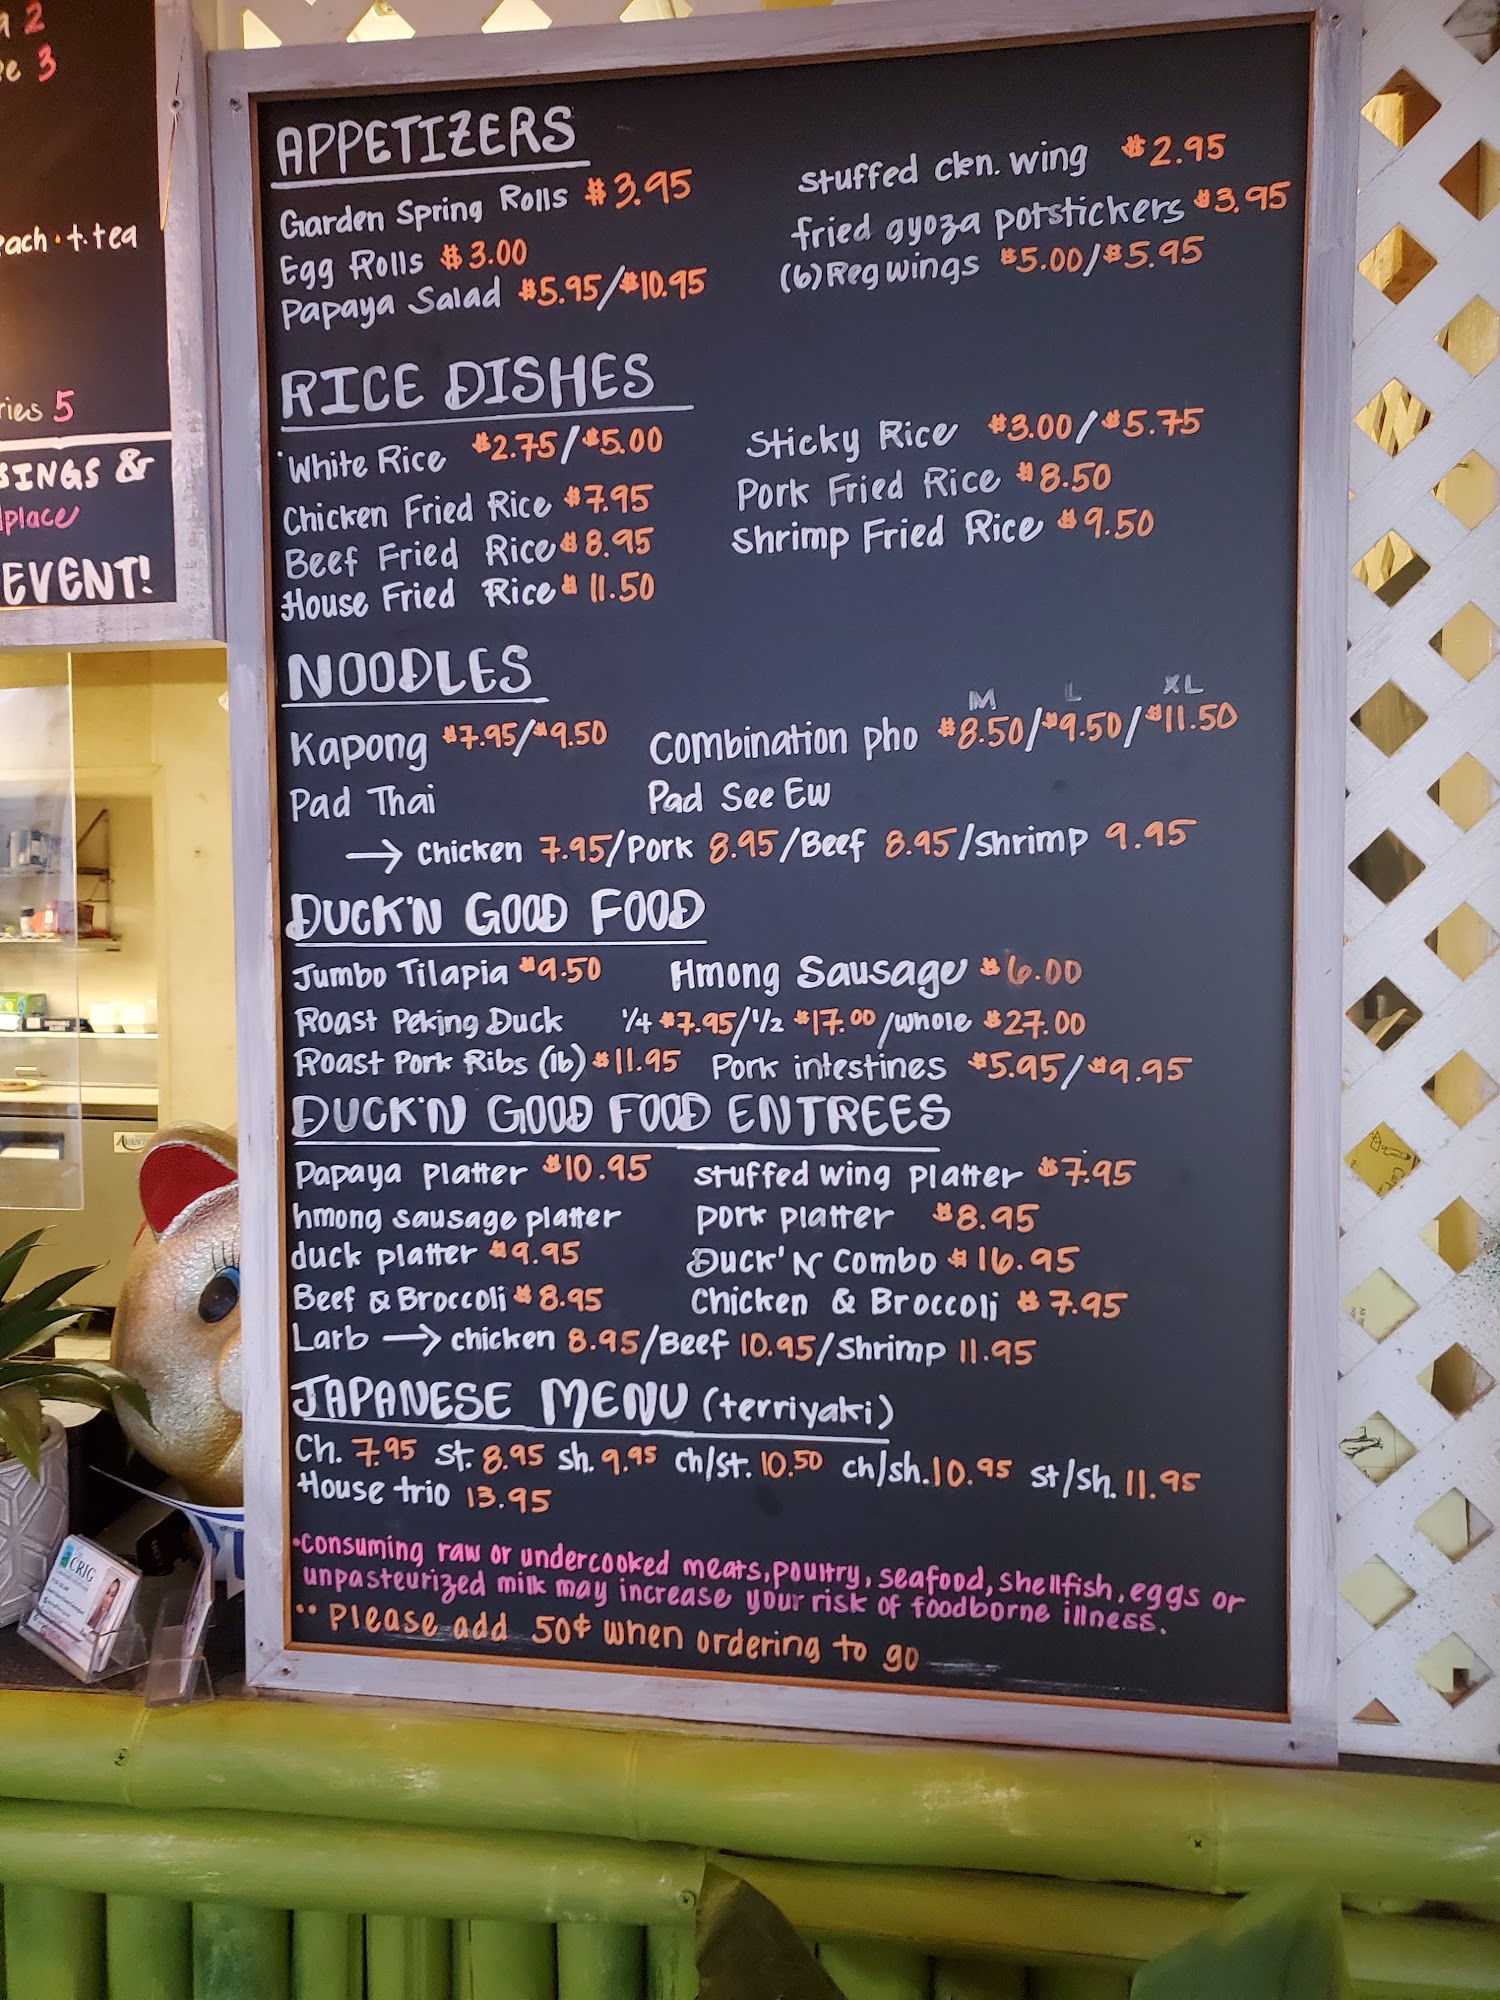 a 2
e 3
each · t. tea
ries 5
SINGS &
place
EVENT!
APPETIZERS
Garden Spring Rolls $3.95
stuffed ckn. wing $2.95
Egg Rolls $3.00
fried gyoza potstickers $3.95
Papaya Salad $5.95/$10.95
(6) Reg wings $5.00/$5.95
RICE DISHES
White Rice $2.75/$5.00
Sticky Rice $3.00/$5.75
Chicken Fried Rice $7.95
Pork Fried Rice $8.50
Beef Fried Rice $8.95
Shrimp Fried Rice $9.50
House Fried Rice $11.50
NOODLES
M L XL
Kapong $7.95/$9.50
Combination pho $8.50/$9.50/$11.50
Pad Thai
Pad See Ew
→ Chicken 7.95/Pork 8.95/Beef 8.95/Shrimp 9.95
DUCK'N GOOD FOOD
Jumbo Tilapia $9.50
Hmong Sausage $6.00
Roast Peking Duck 1/4 $7.95/1/2 $17.00/whole $27.00
Roast Pork Ribs (lb) $11.95
Pork intestines $5.95/$9.95
DUCK'N GOOD FOOD ENTREES
Papaya platter $10.95
stuffed wing platter $7.95
hmong sausage platter
pork platter $8.95
duck platter $9.95
Duck'N Combo $16.95
Beef & Broccoli $8.95
Chicken & Broccoli $7.95
Larb → chicken 8.95/Beef 10.95/Shrimp 11.95
JAPANESE MENU (terriyaki)
Ch. 7.95 st. 8.95 sh. 9.95 ch/st. 10.50 ch/sh. 10.95 st/sh. 11.95
House trio 13.95
•Consuming raw or undercooked meats, poultry, seafood, shellfish, eggs or
unpasteurized milk may increase your risk of foodborne illness.
•• Please add 50¢ when ordering to go
CRIG